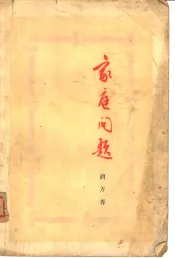 家庭问题
胡万春